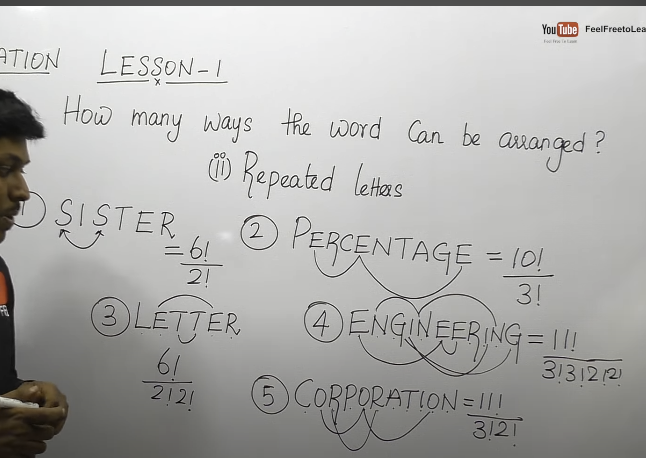 YouTube FeelFreetoLea
Feel Free to Learn
ATION LESSON-1
How many ways the word can be arranged?
(ii) Repeated letters
1) SISTER
= 6!
2!
2 PERCENTAGE = 10!
3!
3 LETTER
6!
2!2!
4 ENGINEERING = 11!
3!3!2!2!
5 CORPORATION = 11!
3!2!